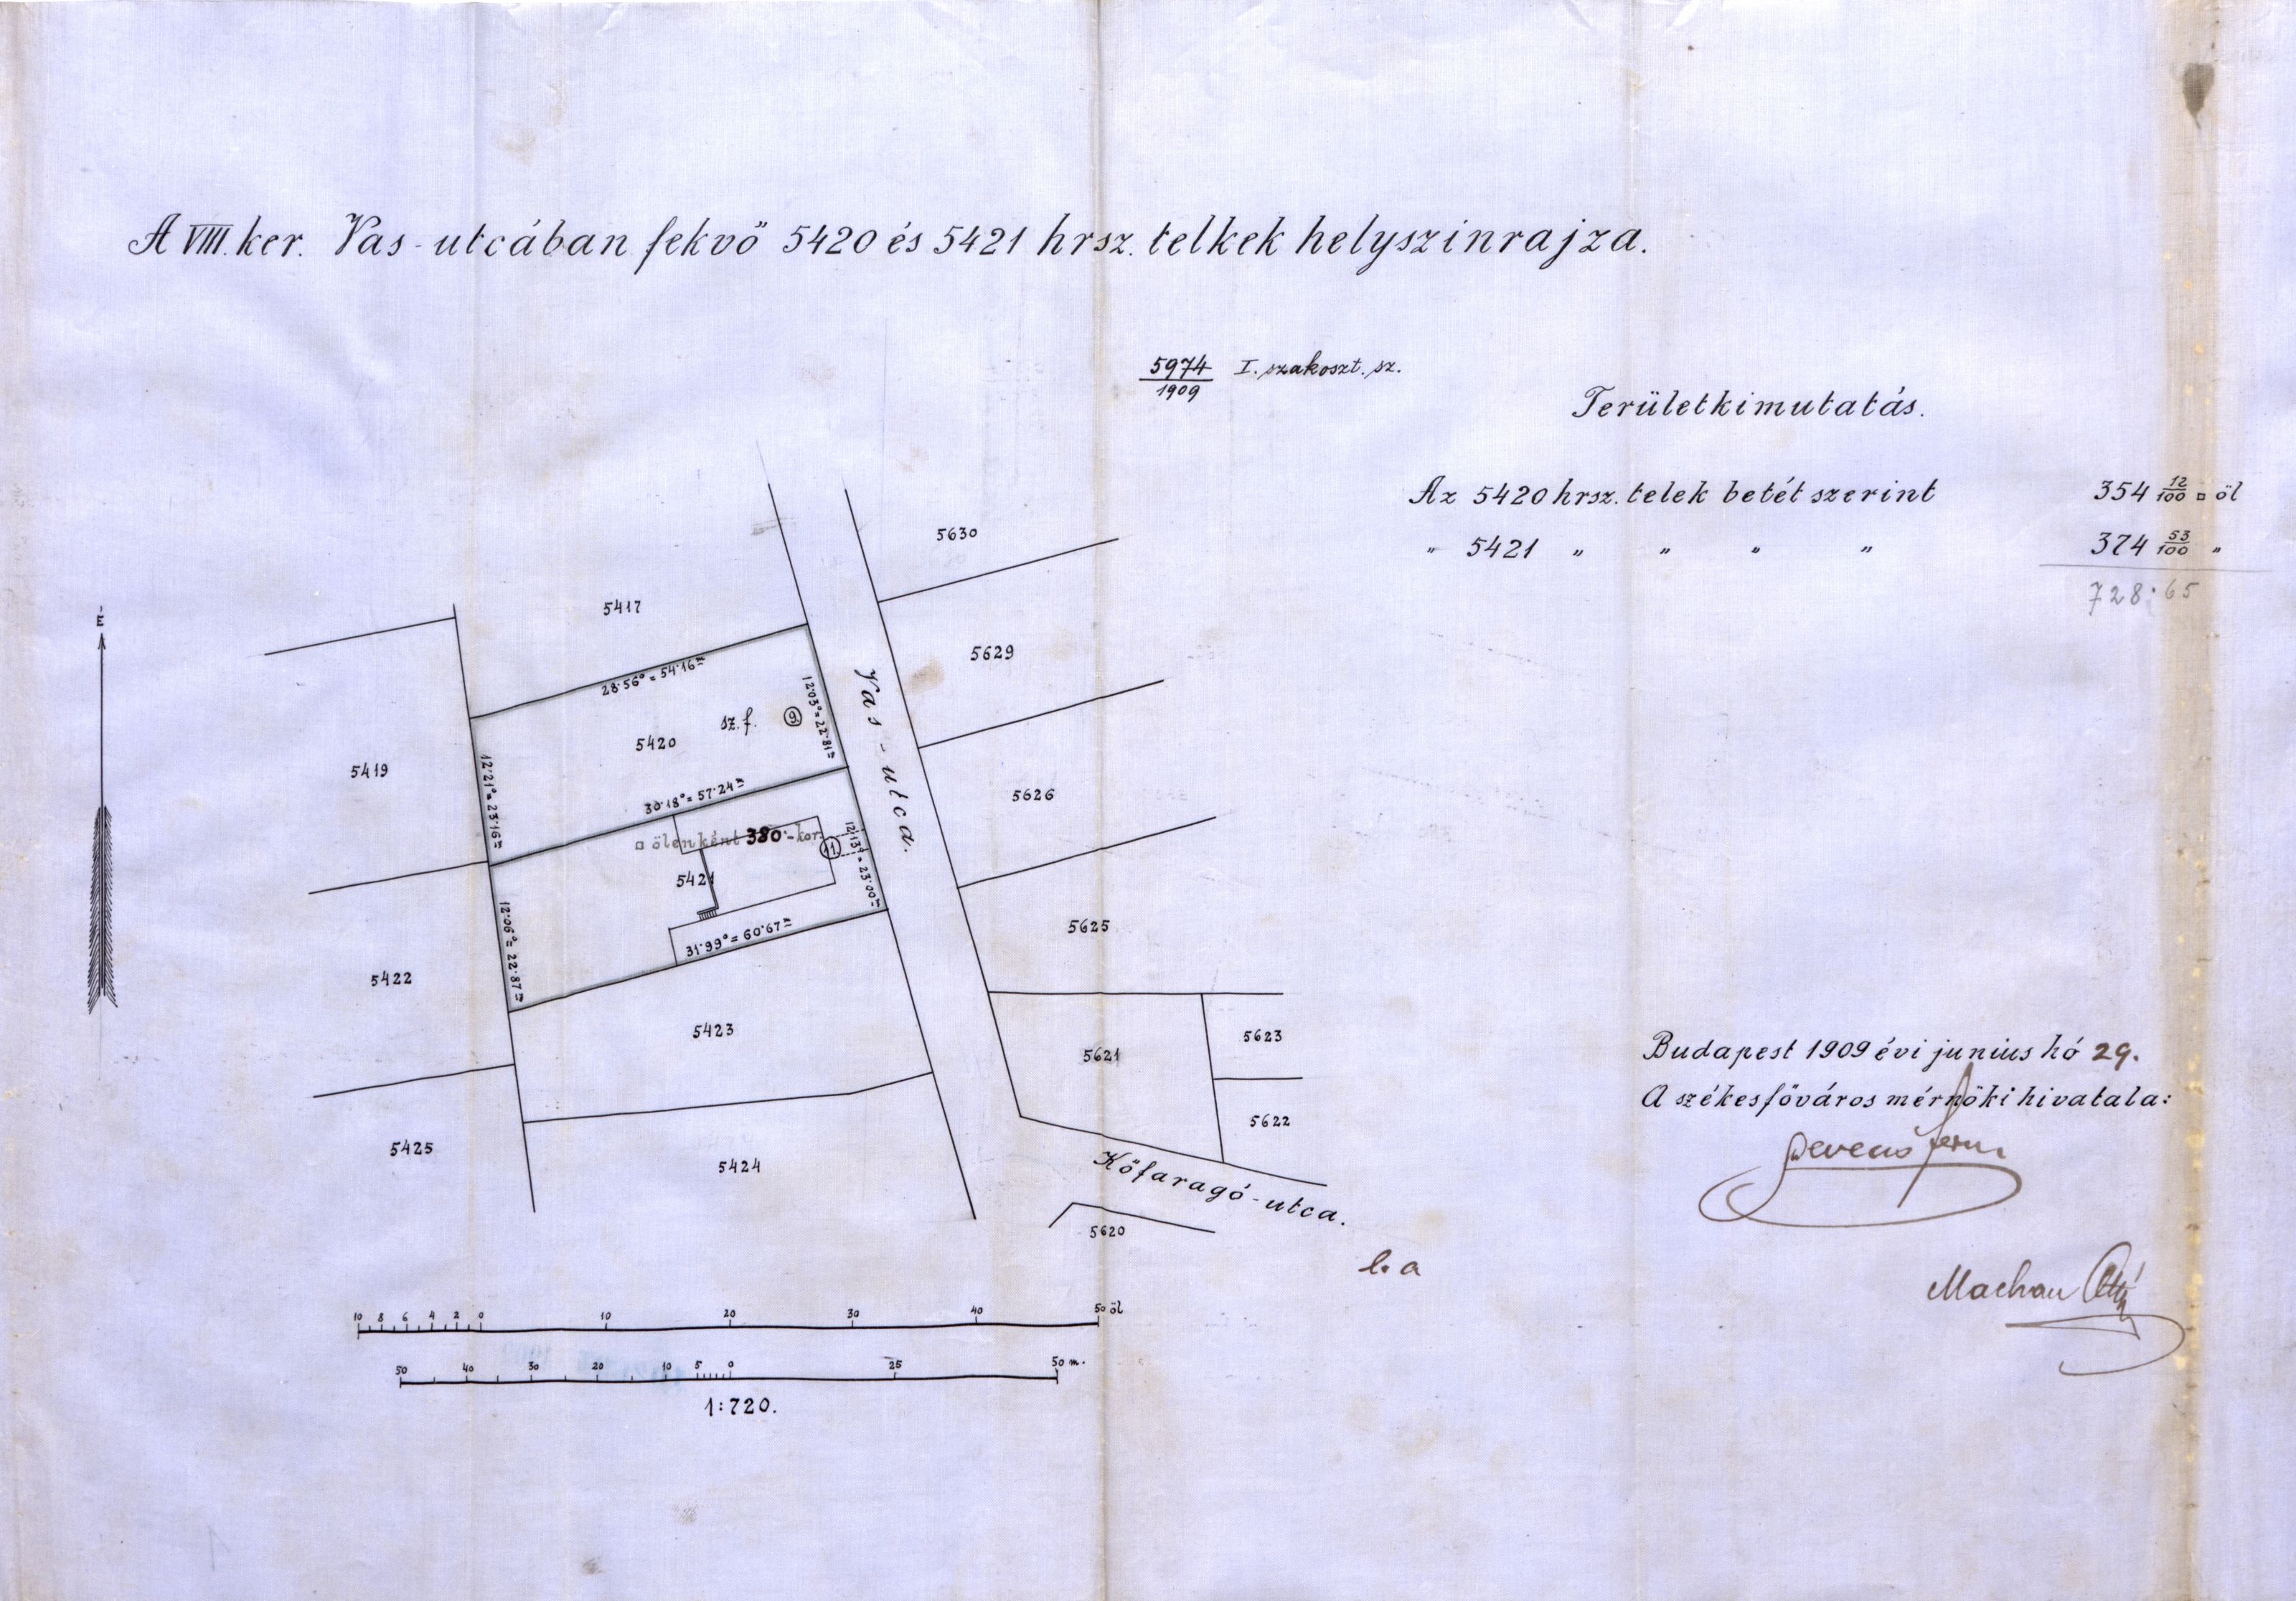 A VIII. ker. Vas-utcában fekvő 5420 és 5421 hrsz. telkek helyszinrajza.
5974
1909
I. szakoszt. sz.
Területkimutatás.
Az 5420 hrsz. telek betét szerint 354 12/100 □ öl
„ 5421 „ „ „ „ 374 53/100 „
728·65
É
5630
5417
5629
28·56° = 54·16 m
12·03° = 22·81 m
sz. f.
9.
5420
5419
Vas-utca.
12·21° = 23·16 m
30·18° = 57·24 m
5626
□ ölenként 380·- kor.
11.
12·13° = 23·00 m
5421
12·06° = 22·87 m
31·99° = 60·67 m
5625
5422
5423
5621
5623
5622
5425
5424
Kőfaragó-utca.
5620
Budapest 1909 évi junius hó 29.
A székesfőváros mérnöki hivatala:
Machau
10 8 6 4 2 0 10 20 30 40 50 öl
50 40 30 20 10 5 0 25 50 m.
1:720.